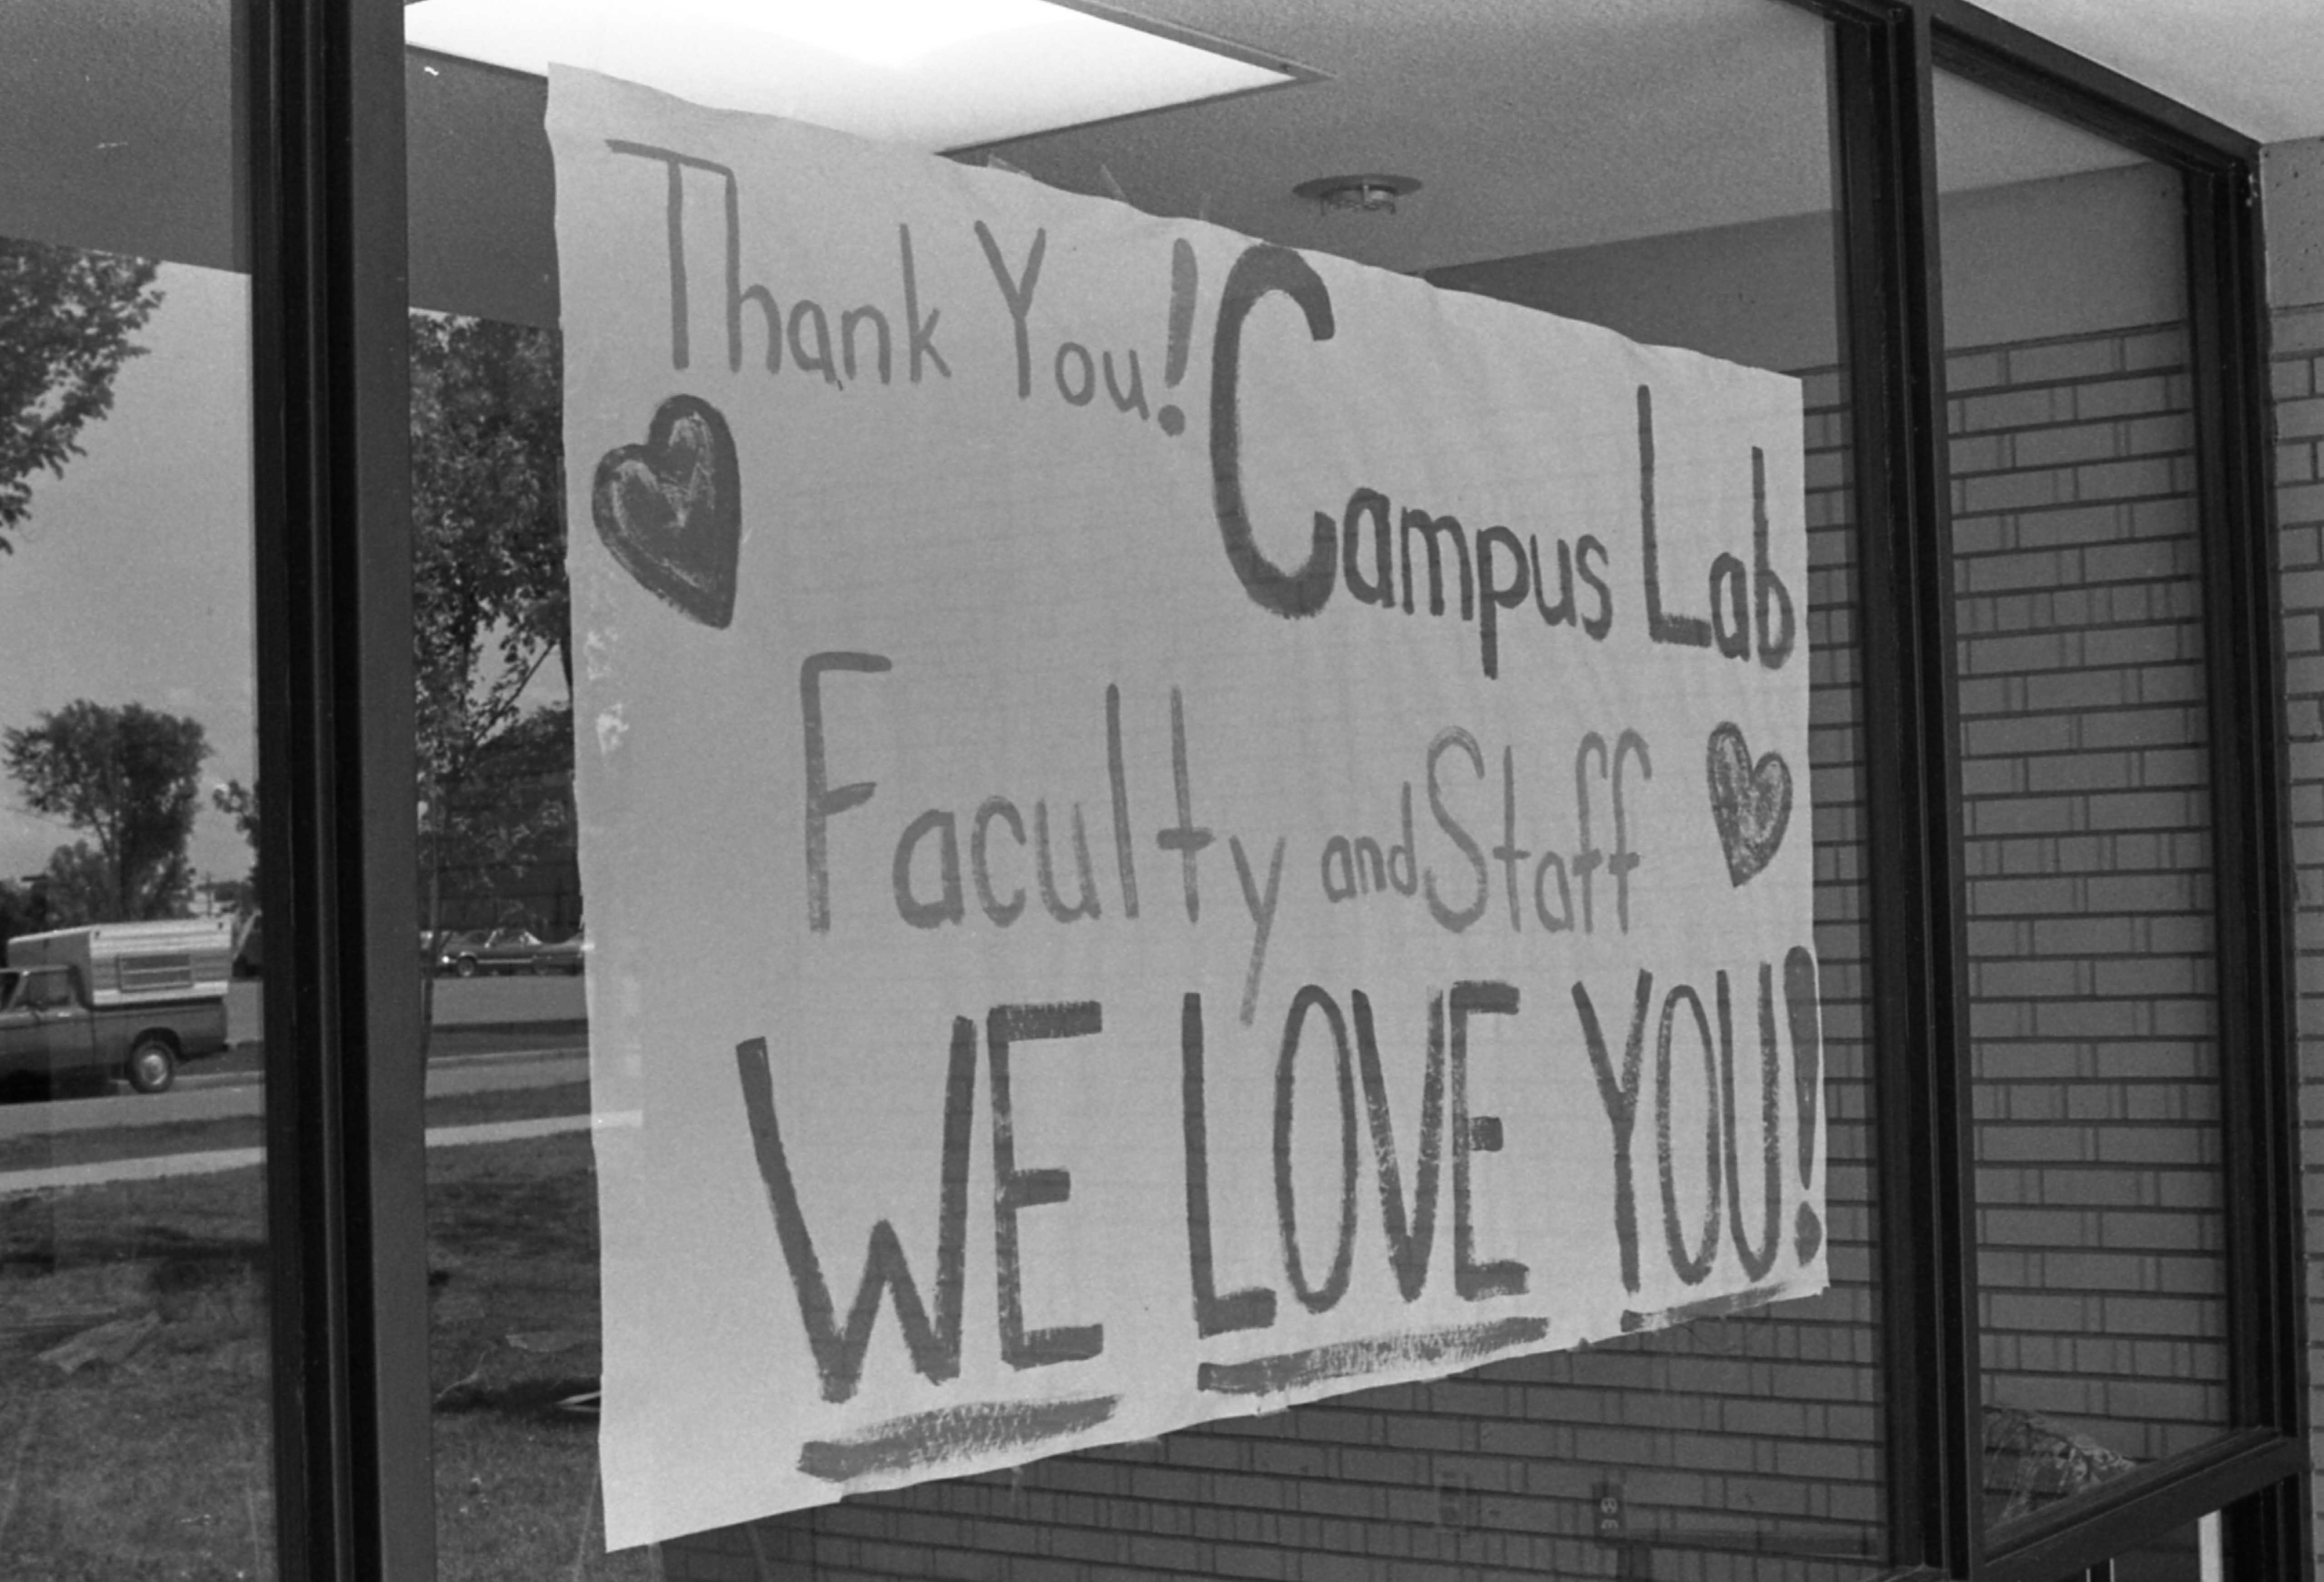 Thank You! Campus Lab
Faculty and Staff
WE LOVE YOU!